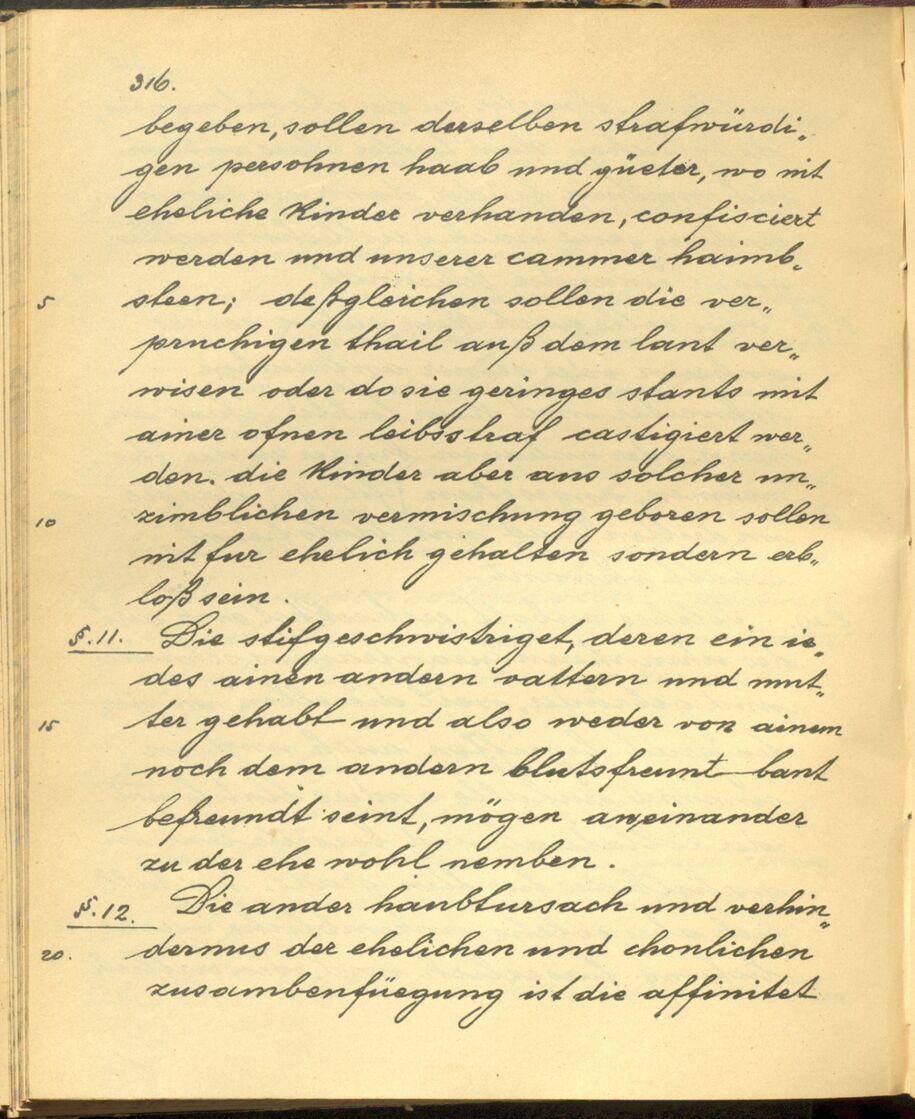 316.
begeben, sollen derselben strafwürdi„
gen persohnen haab und güeter, wo nit
eheliche Kinder verhanden, confisciert
werden und unserer cammer haimb„
5 steen; deßgleichen sollen die ver„
pruchigen thail auß dem lant ver„
wisen oder do sie geringes stants mit
ainer ofnen leibsstraf castigiert wer„
den. die Kinder aber aus solcher un„
10 zimblichen vermischung geboren sollen
nit fur ehelich gehalten sondern erb„
loß sein.
§. 11. Die stifgeschwistriget, deren ein ie„
des ainen andern vattern und mut„
15 ter gehabt und also weder von ainem
noch dem andern blutsfreunt bant
befreundt seint, mögen aneinander
zu der ehe wohl nemben.
§. 12. Die ander haubtursach und verhin„
20. dernus der ehelichen und chonlichen
zusambenfüegung ist die affinitet